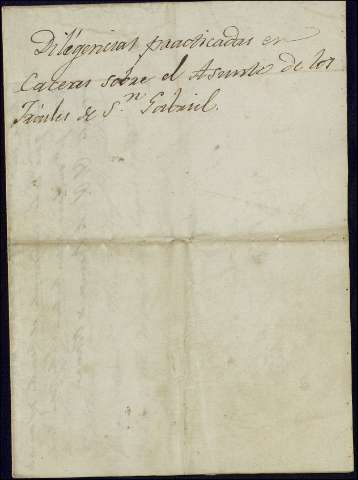 Diligencias practicadas en
Caceres sobre el Asunto de los
Frailes de S.n Gabriel.